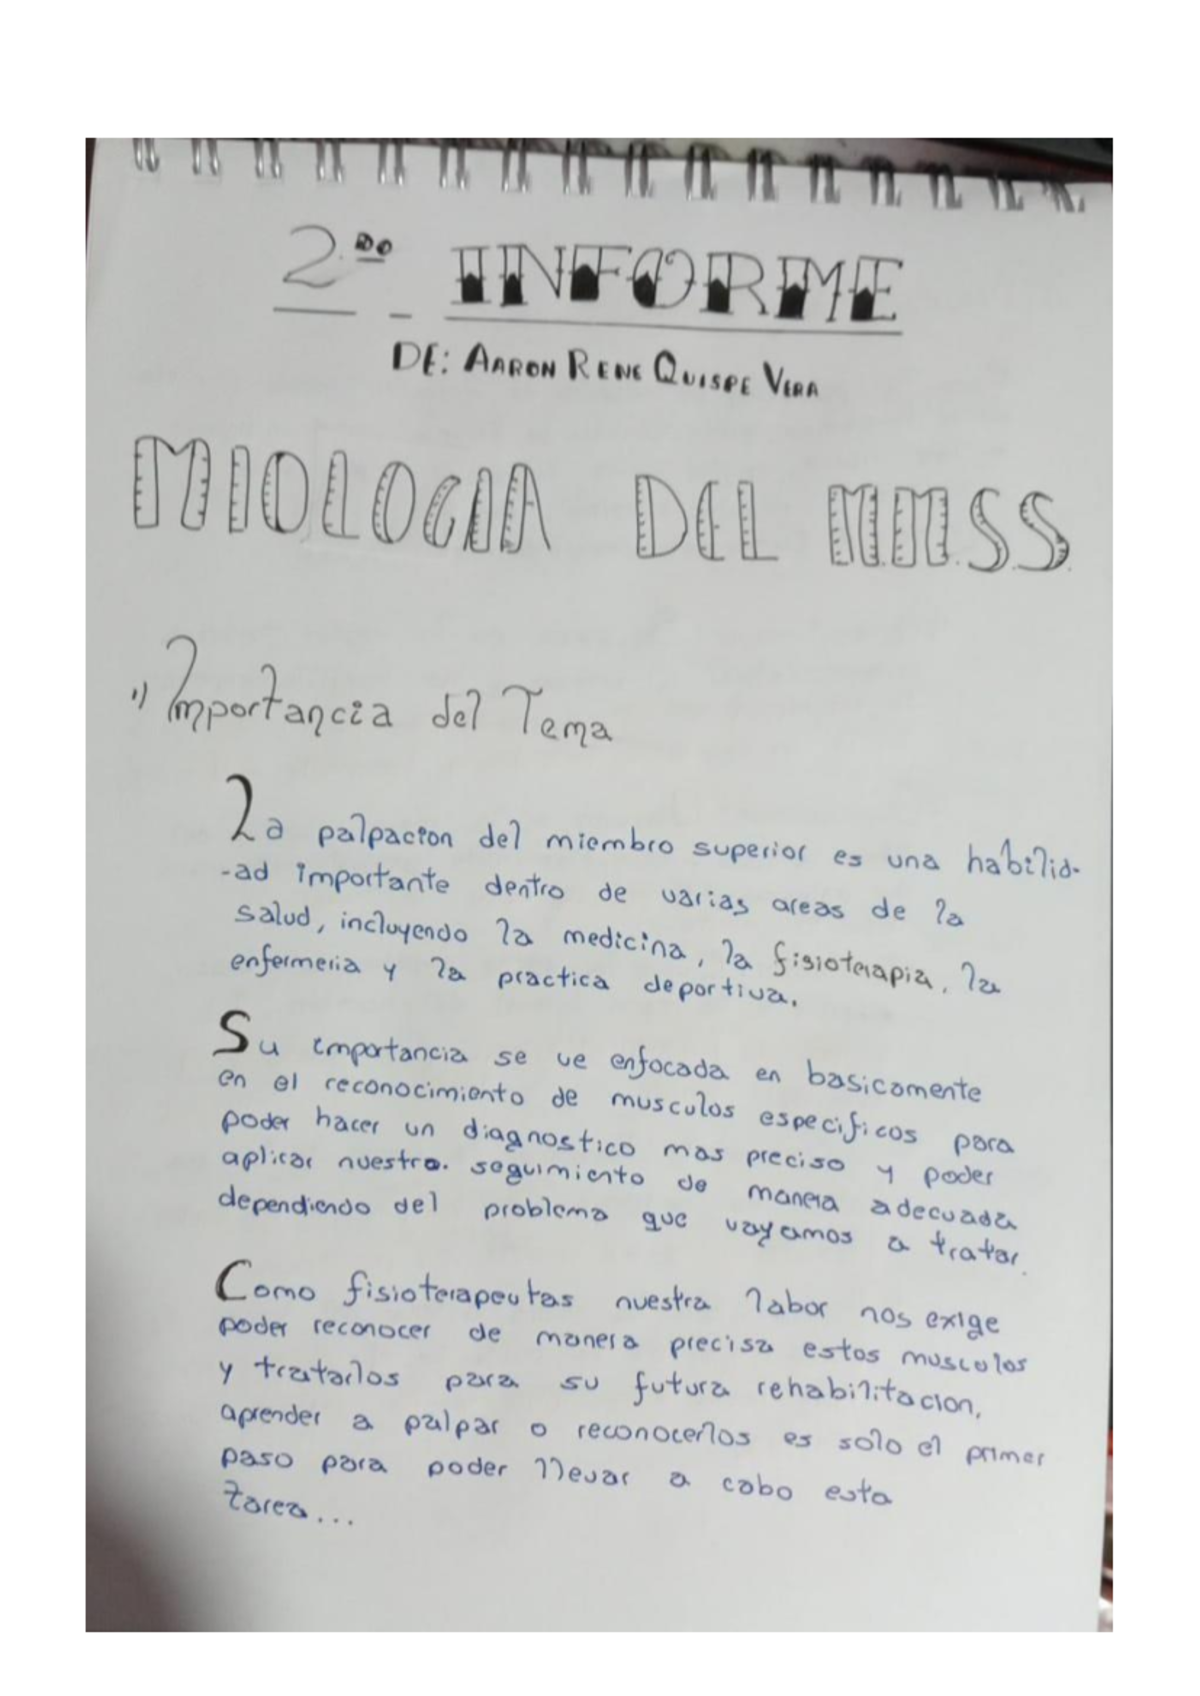 2.do - INFORME
DE: AARON RENE QUISPE VERA
MIOLOGIA DEL M.M.S.S.
1) Importancia del Tema
La palpacion del miembro superior es una habilid-
-ad importante dentro de varias areas de la
salud, incluyendo la medicina, la fisioterapia, la
enfermeria y la practica deportiva.
Su importancia se ve enfocada en basicamente
en el reconocimiento de musculos especificos para
poder hacer un diagnostico mas preciso y poder
aplicar nuestro. seguimiento de manera adecuada
dependiendo del problema que vayamos a tratar.
Como fisioterapeutas nuestra labor nos exige
poder reconocer de manera precisa estos musculos
y tratarlos para su futura rehabilitacion,
aprender a palpar o reconocerlos es solo el primer
paso para poder llevar a cabo esta
tarea...